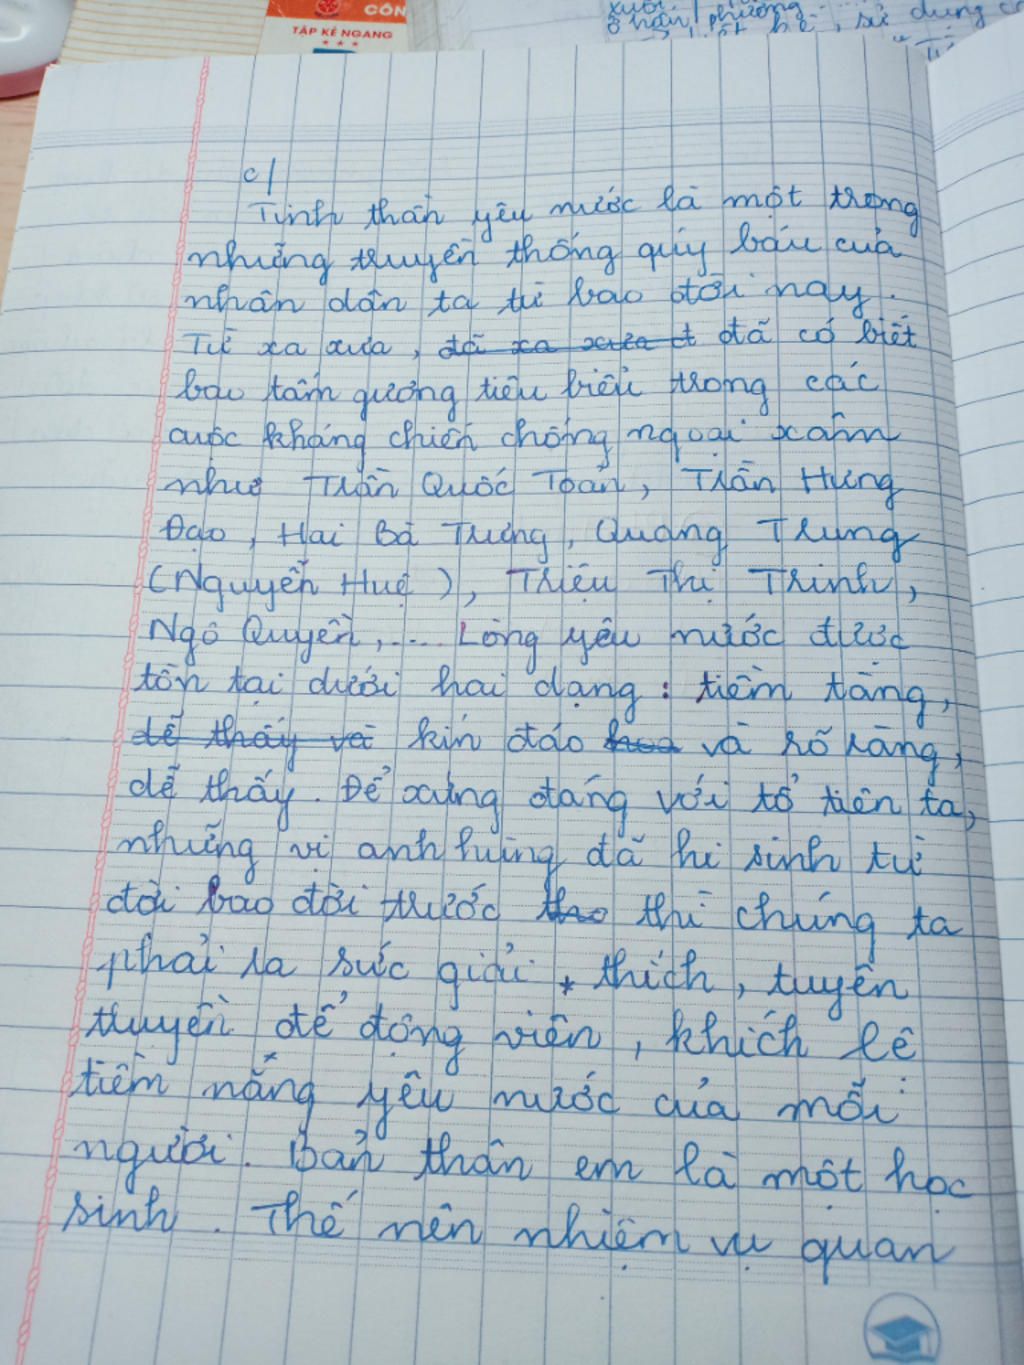 CÔN
TẬP KẺ NGANG
★ ★ ★
phương
sử dụng
c/
Tinh thần yêu nước là một trong
những truyền thống quý báu của
nhân dân ta từ bao đời nay.
Từ xa xưa, đã xa xưa t đã có biết
bao tấm gương tiêu biểu trong các
cuộc kháng chiến chống ngoại xâm
như Trần Quốc Toản, Trần Hưng
Đạo, Hai Bà Trưng, Quang Trung
(Nguyễn Huệ), Triệu Thị Trinh,
Ngô Quyền,.... Lòng yêu nước được
tồn tại dưới hai dạng: tiềm tàng,
dễ thấy và kín đáo và rõ ràng,
dễ thấy. Để xứng đáng với tổ tiên ta,
những vị anh hùng đã hi sinh từ
đời bao đời trước tho thì chúng ta
phải ra sức giải * thích, tuyên
truyền để động viên, khích lê
tiềm năng yêu nước của mỗi
người. Bản thân em là một học
sinh. Thế nên nhiệm vụ quan